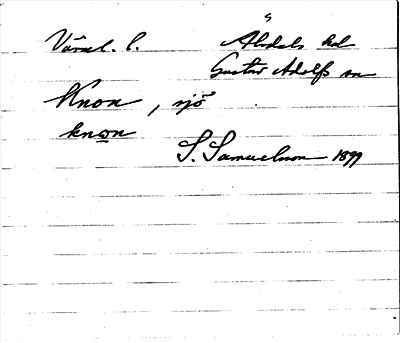 Värml. l. Älvdals hd
Gustav Adolfs sn
Knon, sjö
knon
S. Samuelsson 1899